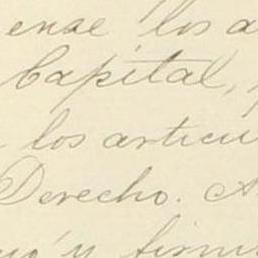 ense los a
Capital,
los articu
Derecho. A
y firm